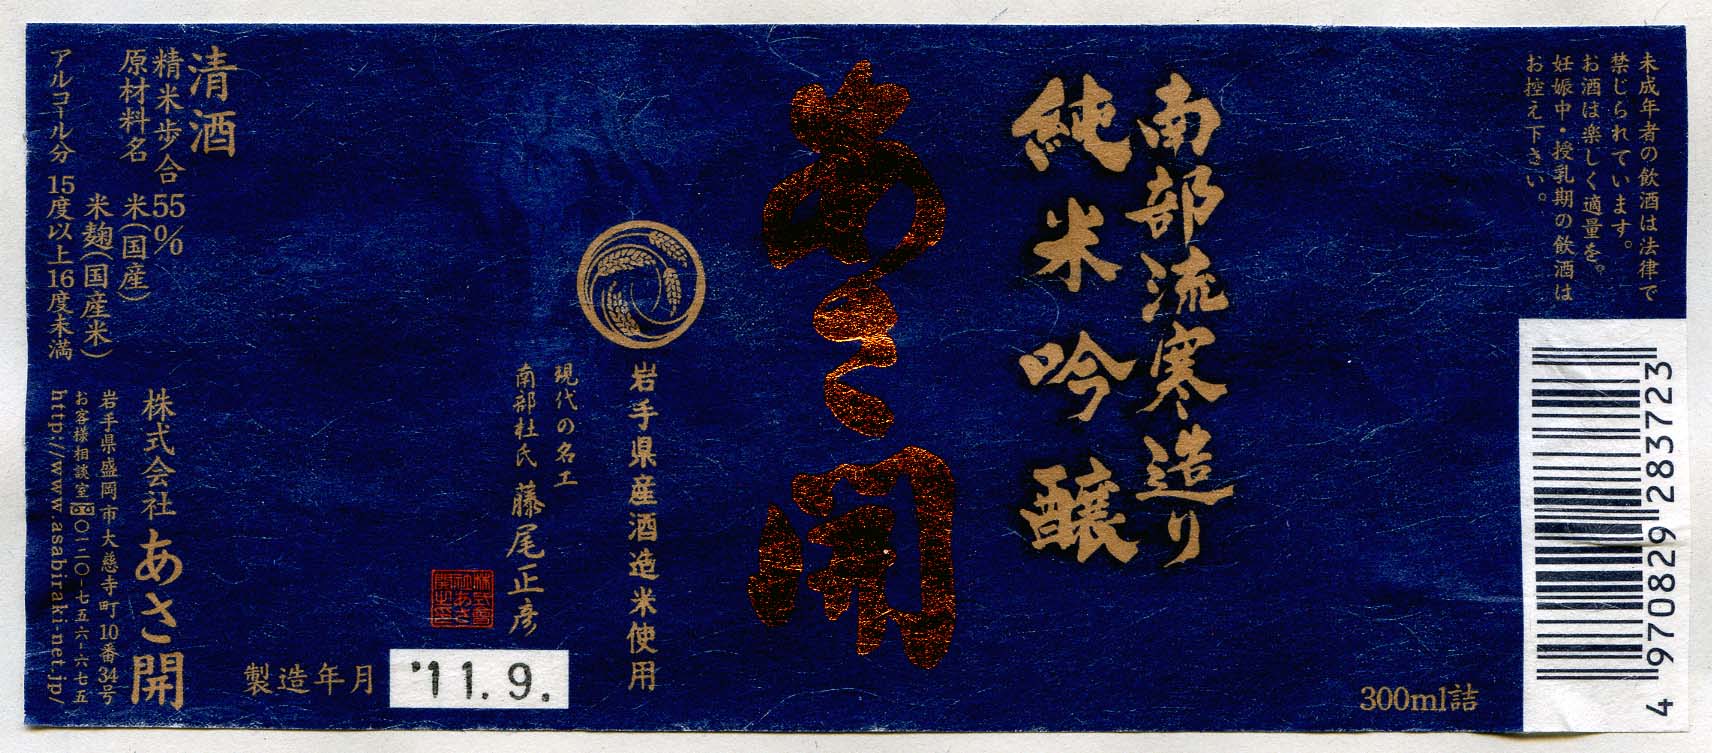 未成年者の飲酒は法律で
禁じられています。
お酒は楽しく適量を。
妊娠中・授乳期の飲酒は
お控え下さい。
4 970829 283723
300ml詰
南部流寒造り
純米吟醸
あさ開
岩手県産酒造米使用
現代の名工
南部杜氏 藤尾正彦
製造年月 '11.9.
清酒
精米歩合 55%
原材料名 米(国産)
米麹(国産米)
アルコール分 15度以上16度未満
株式会社 あさ開
岩手県盛岡市大慈寺町10番34号
お客様相談室 〇一二〇-七五六-六七五
http://www.asabiraki-net.jp/